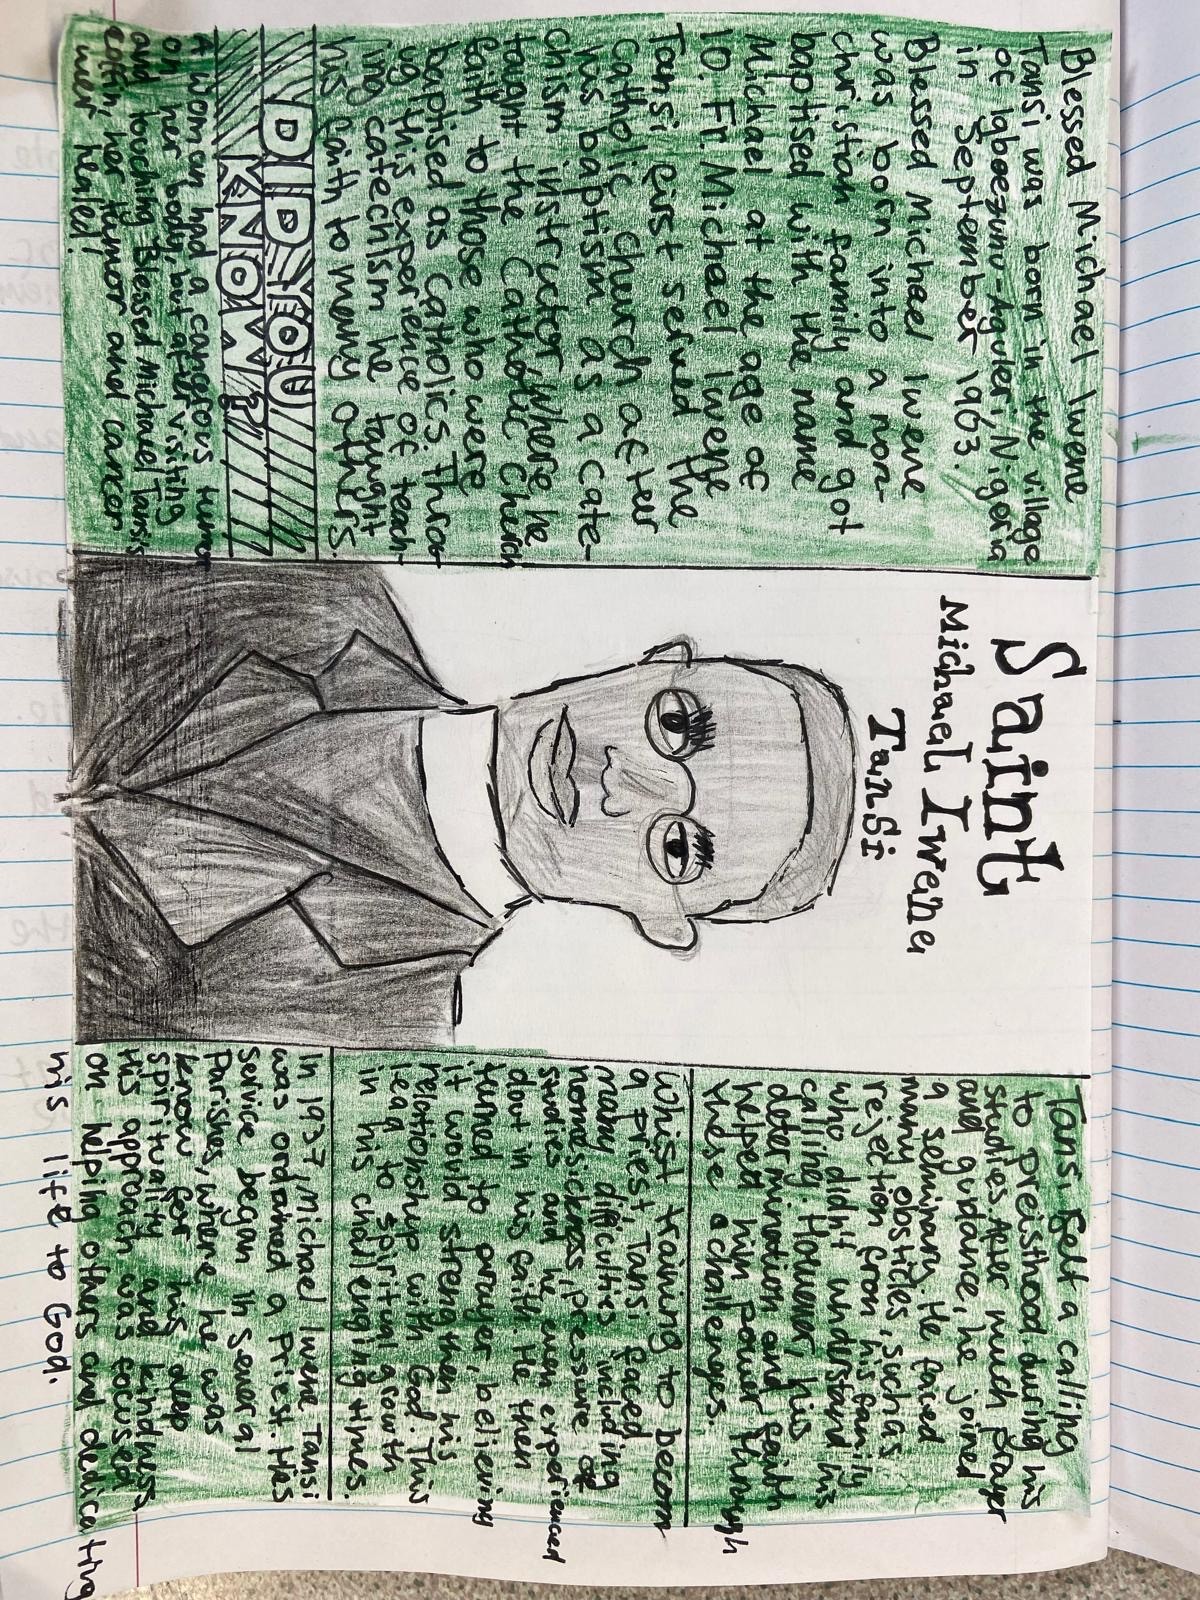 Blessed Michael Iwene
Tansi was born in the village
of Igboezunu-Aguleri, Nigeria
in September 1963.
Blessed Micheel Iwene
was born into a non-
christian family and got
baptised with the name
Michael at the age of
10. Fr. Michael Iwene
Tansi first served the
Catholic Church after
his baptism as a cate-
chism instructor. Where he
taught the Catholic Church
faith to those who were
baptised as Catholics. Throu
ugh this experience of teach-
ing catechism he taught
his faith to many others.
DID YOU
KNOW?
A woman had a cancerous tumor
on her body, but after visiting
and touching Blessed Michael Tansi's
coffin, her tumor and cancer
wer healed!
Saint
Michael Iwene
Tansi
Tansi felt a calling
to preisthood during his
studies. After much prayer
and guydance, he joined
a seminary. He faced
many obstcles, such as
rejection from his family
who didn't understand his
calling. However, his
determination and faith
helped him power through
these challenges.
Whist training to becom
a priest Tansi faced
many difficulties including
homesickness, pressure of
studies and he even experienced
dout in his faith. He then
turned to prayer, believing
it would strengthen his
relationship with God. This
lead to spiritial growth
in his challenging times.
In 1937, Michael Iwene Tansi
was ordained a priest. His
Service began in several
Parishes, where he was
known for his deep
spirituality and kindness.
His approach was focused
on helping others and dedicating
his life to God.